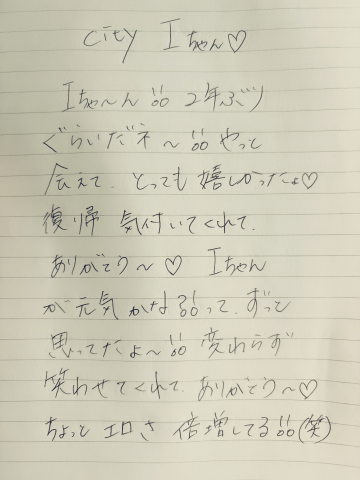 city Iちゃん♡
Iちゃ〜ん!!! 2年ぶり
ぐらいだネ〜!!! やっと
会えて、とっても嬉しかったょ♡
復帰 気付いてくれて、
ありがとう〜♡ Iちゃん
が元気かな!!!って、ずっと
思ってたょ〜!!! 変わらず
笑わせてくれて、ありがとう〜♡
ちょっと エロさ 倍増してる!!!(笑)